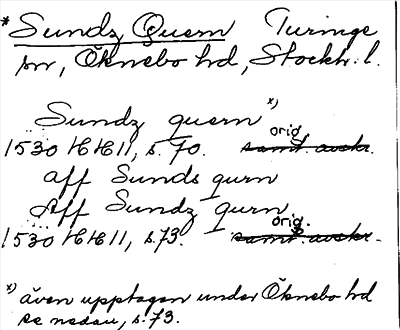 *Sundz Quern Turinge
sn, Öknebo hd, Stockh. l.
Sundz quern x)
orig.
1530 HH 11, s. 70. samt. avskr.
aff Sunds qurn
Aff Sundz qurn
orig.
1530 HH 11, s. 73. samt. avskr.
x) även upptagen under Öknebo hd
se nedan, s. 73.